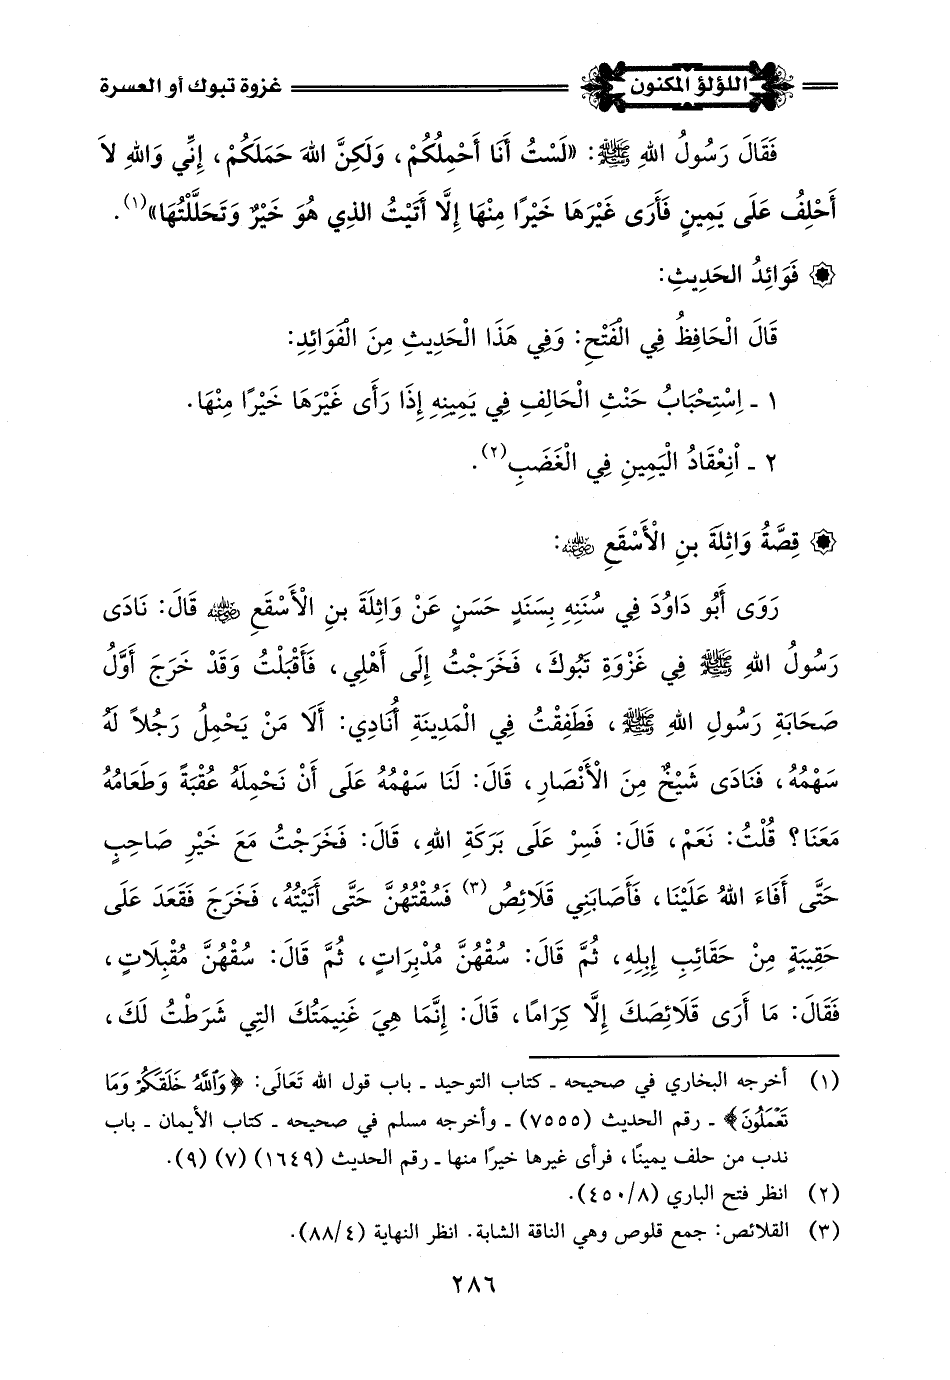 اللؤلؤ المكنون
غزوة تبوك أو العسرة
فَقَالَ رَسُولُ اللهِ ﷺ: «لَسْتُ أَنَا أَحْمِلُكُمْ، وَلَكِنَّ اللهَ حَمَلَكُمْ، إِنِّي وَاللهِ لاَ
أَحْلِفُ عَلَى يَمِينٍ فَأَرَى غَيْرَهَا خَيْرًا مِنْهَا إِلَّا أَتَيْتُ الذِي هُوَ خَيْرٌ وَتَحَلَّلْتُهَا»(١).
۞ فَوَائِدُ الحَدِيثِ:
قَالَ الْحَافِظُ فِي الْفَتْحِ: وَفِي هَذَا الْحَدِيثِ مِنَ الْفَوَائِدِ:
١ ـ اِسْتِحْبَابُ حَنْثِ الْحَالِفِ فِي يَمِينِهِ إِذَا رَأَى غَيْرَهَا خَيْرًا مِنْهَا.
٢ ـ اْنِعْقَادُ الْيَمِينِ فِي الْغَضَبِ(٢).
۞ قِصَّةُ وَاثِلَةَ بنِ الْأَسْقَعِ رضي الله عنه:
رَوَى أَبُو دَاوُدَ فِي سُنَنِهِ بِسَنَدٍ حَسَنٍ عَنْ وَاثِلَةَ بنِ الْأَسْقَعِ رضي الله عنه قَالَ: نَادَى
رَسُولُ اللهِ ﷺ فِي غَزْوَةِ تَبُوكَ، فَخَرَجْتُ إِلَى أَهْلِي، فَأَقْبَلْتُ وَقَدْ خَرَجَ أَوَّلُ
صَحَابَةِ رَسُولِ اللهِ ﷺ، فَطَفِقْتُ فِي الْمَدِينَةِ أُنَادِي: أَلَا مَنْ يَحْمِلُ رَجُلاً لَهُ
سَهْمُهُ، فَنَادَى شَيْخٌ مِنَ الْأَنْصَارِ، قَالَ: لَنَا سَهْمُهُ عَلَى أَنْ نَحْمِلَهُ عُقْبَةً وَطَعَامُهُ
مَعَنَا؟ قُلْتُ: نَعَمْ، قَالَ: فَسِرْ عَلَى بَرَكَةِ اللهِ، قَالَ: فَخَرَجْتُ مَعَ خَيْرِ صَاحِبٍ
حَتَّى أَفَاءَ اللهُ عَلَيْنَا، فَأَصَابَنِي قَلَائِصُ(٣) فَسُقْتُهُنَّ حَتَّى أَتَيْتُهُ، فَخَرَجَ فَقَعَدَ عَلَى
حَقِيبَةٍ مِنْ حَقَائِبِ إِبِلِهِ، ثُمَّ قَالَ: سُقْهُنَّ مُدْبِرَاتٍ، ثُمَّ قَالَ: سُقْهُنَّ مُقْبِلَاتٍ،
فَقَالَ: مَا أَرَى قَلَائِصَكَ إِلَّا كِرَامًا، قَالَ: إِنَّمَا هِيَ غَنِيمَتُكَ التِي شَرَطْتُ لَكَ،
(١) أخرجه البخاري في صحيحه ـ كتاب التوحيد ـ باب قول الله تَعَالَى: ﴿وَاللَّهُ خَلَقَكُمْ وَمَا
تَعْمَلُونَ﴾ ـ رقم الحديث (٧٥٥٥) ـ وأخرجه مسلم في صحيحه ـ كتاب الأيمان ـ باب
ندب من حلف يمينًا، فرأى غيرها خيرًا منها ـ رقم الحديث (١٦٤٩) (٧) (٩).
(٢) انظر فتح الباري (٤٥٠/٨).
(٣) القلائص: جمع قلوص وهي الناقة الشابة. انظر النهاية (٨٨/٤).
٢٨٦